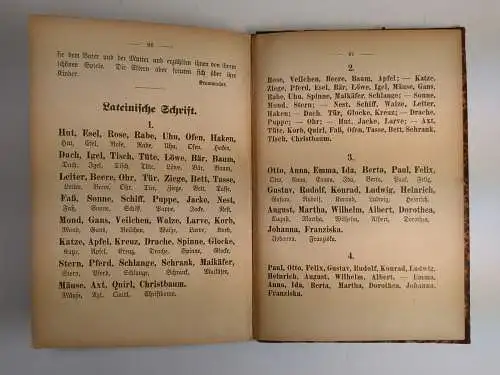 96
sie dem Vater und der Mutter und erzählten ihnen von ihrem
schönen Spiele. Die Eltern aber freuten sich über ihre
Kinder.
Lateinische Schrift.
1.
Hut, Esel, Rose, Rabe, Uhu, Ofen, Haken,
Hut, Esel, Rose, Rabe, Uhu, Ofen, Haken,
Dach, Igel, Tisch, Tüte, Löwe, Bär, Baum,
Dach, Igel, Tisch, Tüte, Löwe, Bär, Baum,
Leiter, Beere, Ohr, Tür, Ziege, Bett, Tasse,
Leiter, Beere, Ohr, Tür, Ziege, Bett, Tasse,
Faß, Sonne, Schiff, Puppe, Jacke, Nest,
Faß, Sonne, Schiff, Puppe, Jacke, Nest,
Mond, Gans, Veilchen, Walze, Larve, Korb,
Mond, Gans, Veilchen, Walze, Larve, Korb,
Katze, Apfel, Kreuz, Drache, Spinne, Glocke,
Katze, Apfel, Kreuz, Drache, Spinne, Glocke,
Stern, Pferd, Schlange, Schrank, Maikäfer,
Stern, Pferd, Schlange, Schrank, Maikäfer,
Mäuse, Axt, Quirl, Christbaum.
Mäuse, Axt, Quirl, Christbaum.
97
2.
Rose, Veilchen, Beere, Baum, Apfel; — Katze,
Ziege, Pferd, Esel, Bär, Löwe, Igel, Mäuse, Gans,
Rabe, Uhu, Spinne, Maikäfer, Schlange; — Sonne,
Mond, Stern; — Nest, Schiff, Walze, Leiter,
Haken; — Dach, Tür, Glocke, Kreuz; — Drache,
Puppe; — Ohr; — Hut, Jacke, Larve; — Axt,
Tüte, Korb, Quirl, Faß, Ofen, Tasse, Bett, Schrank,
Tisch, Christbaum.
3.
Otto, Anna, Emma, Ida, Berta, Paul, Felix,
Otto, Anna, Emma, Ida, Berta, Paul, Felix,
Gustav, Rudolf, Konrad, Ludwig, Heinrich,
Gustav, Rudolf, Konrad, Ludwig, Heinrich,
August, Martha, Wilhelm, Albert, Dorothea,
August, Martha, Wilhelm, Albert, Dorothea,
Johanna, Franziska.
Johanna, Franziska.
4.
Paul, Otto, Felix, Gustav, Rudolf, Konrad, Ludwig,
Heinrich, August, Wilhelm, Albert, — Emma,
Anna, Ida, Berta, Martha, Dorothea, Johanna,
Franziska.